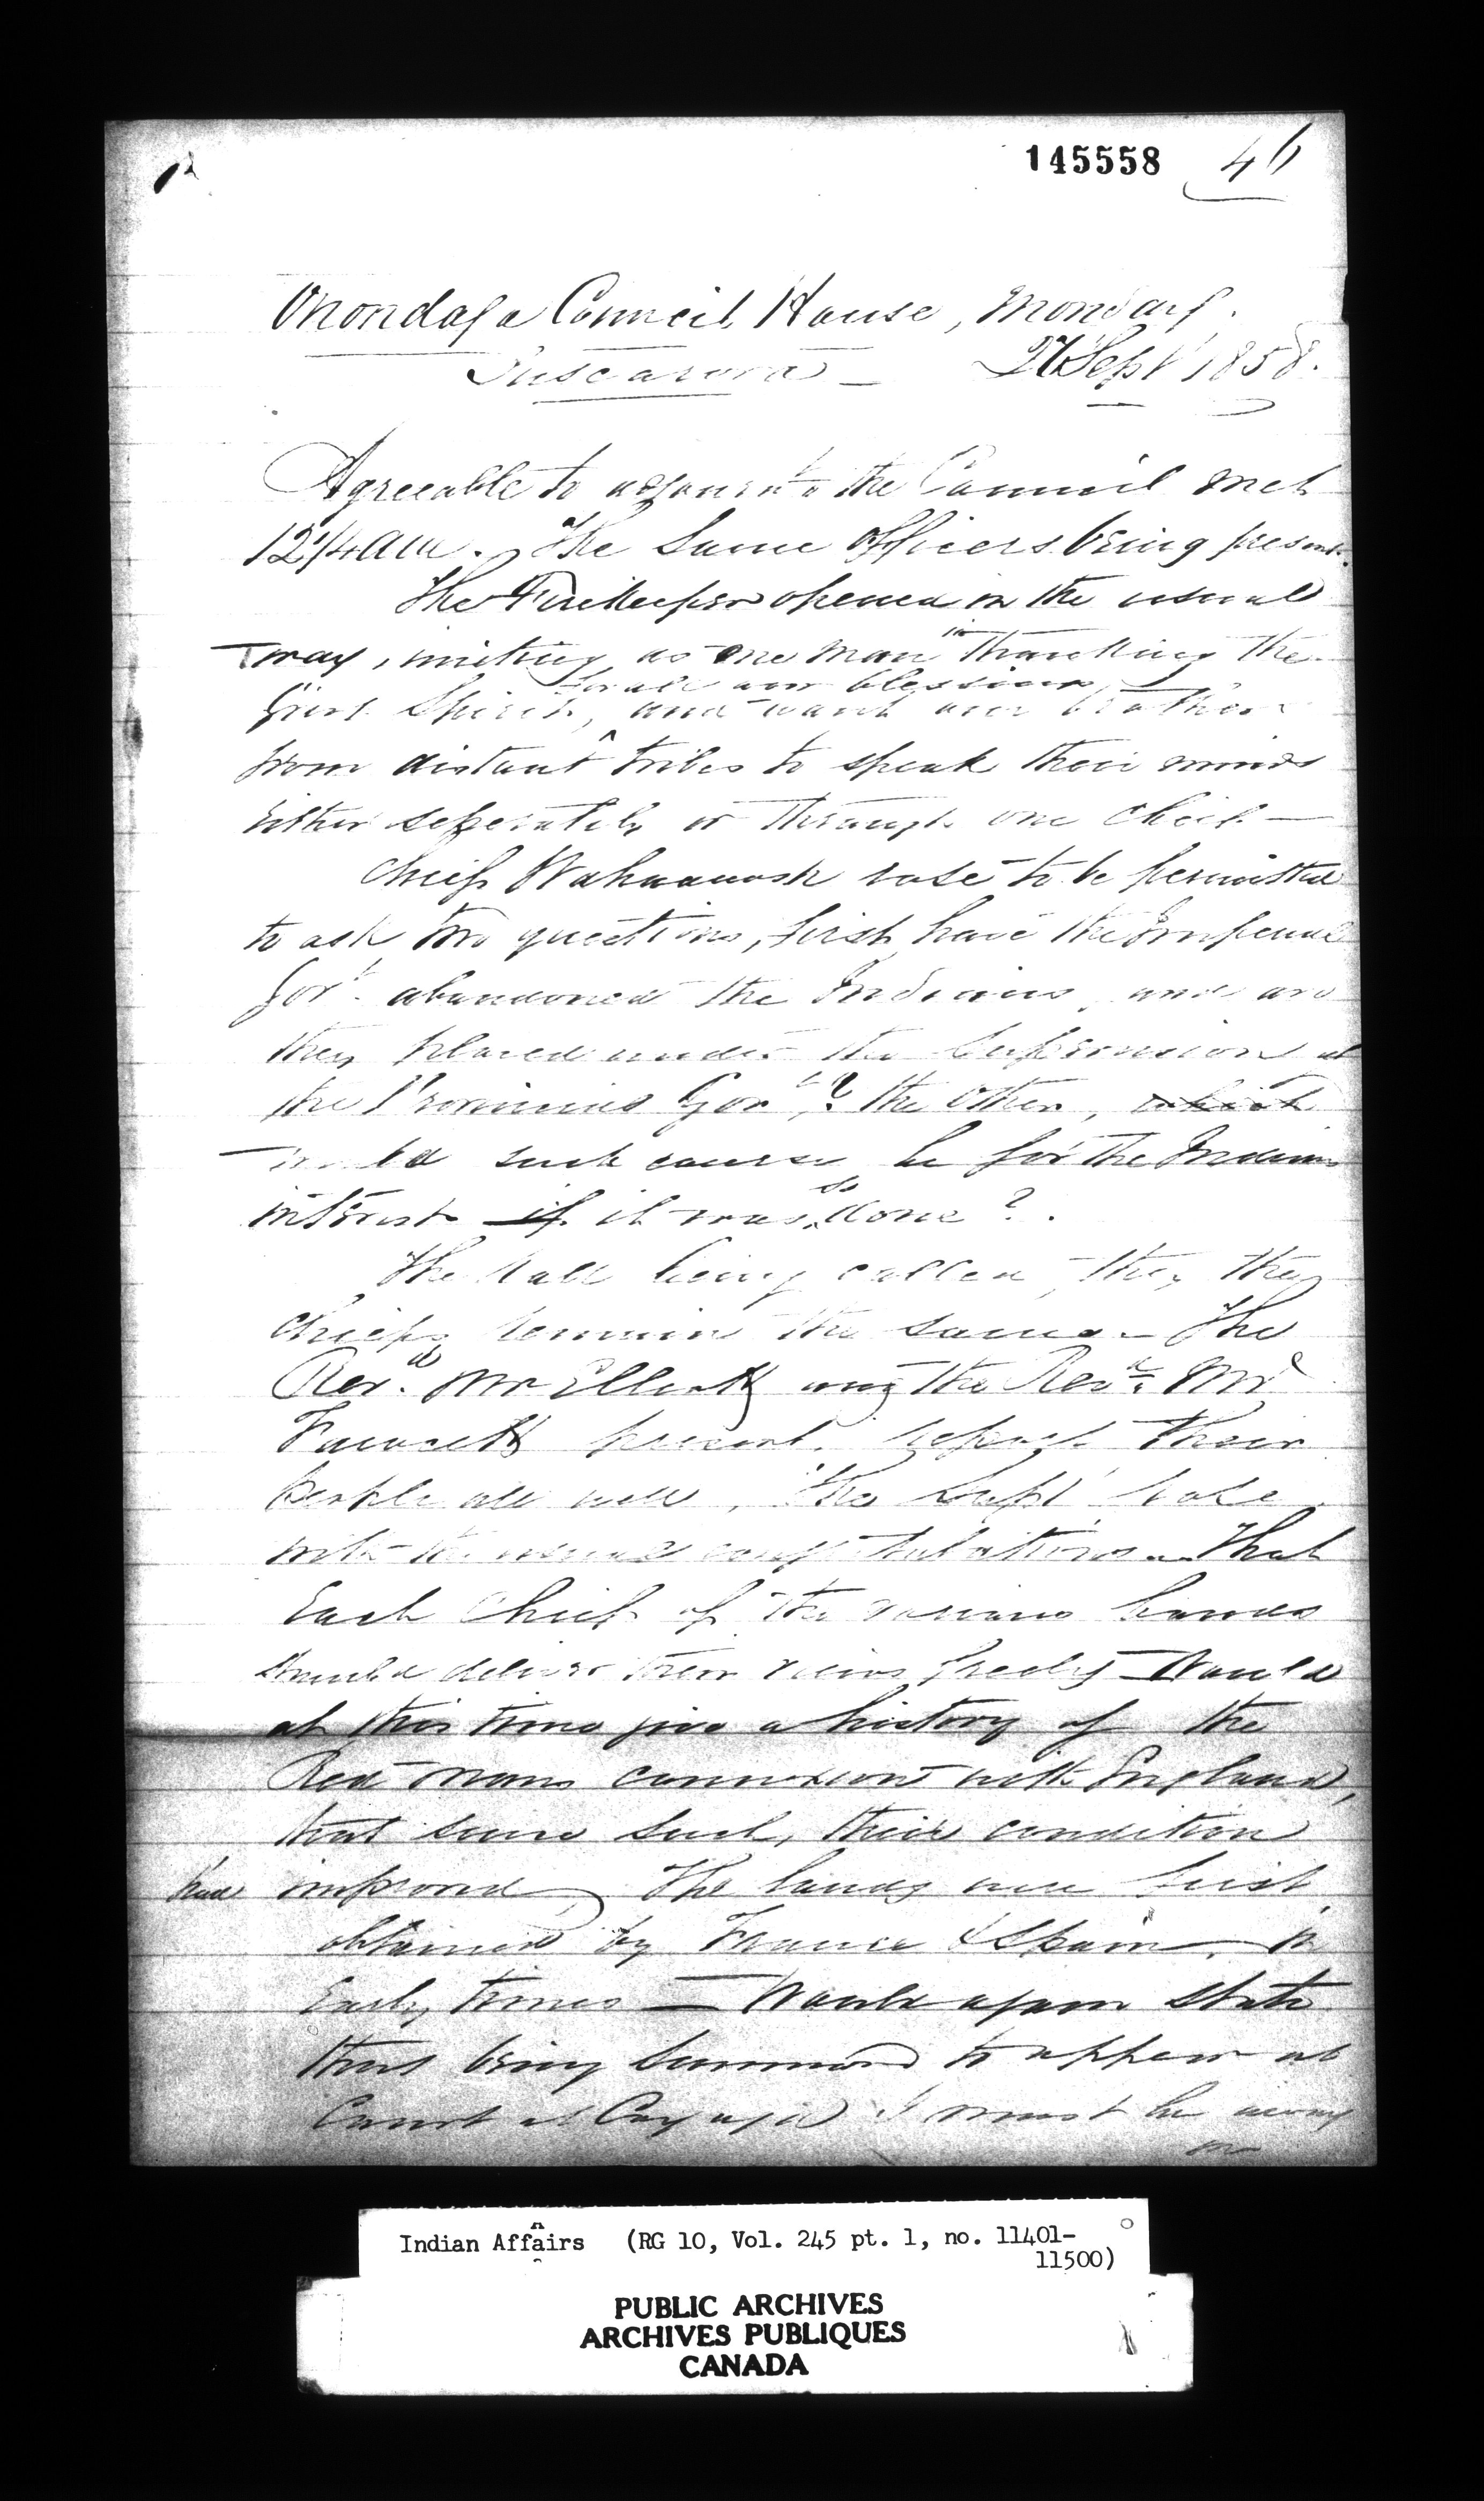 145558 46
Onondaga Council House, Monday,
Tuscarora — 27 Sept 1858.
Agreeable to adjournt the Council met
12 1/4 am. The same Officers being present.
The Firekeeper opened in the usual
way, uniting as one man in thanking the
Great Spirit, for all our blessings and want our brothers
from distant tribes to speak their minds
either seperately or through one Chief —
Chief Wahwanosh rose to be permitted
to ask two questions, first have the Imperial
Govt. abandoned the Indians, and are
they placed under the supervision of
the Province Govt,? the other, which
would such course be for the Indians
interest if it was so done?
The Roll being called, the
Chiefs remain the same — The
Revd. Mr Elliott and the Revd. Mr
Fawcett present. report their
people all well, The Supt rose
with the usual congratulations — That
Each Chief of the various bands
should deliver their views freely — Would
at this time give a history of the
Red mans connexion with England,
that since such, their condition
had improved, The lands were first
obtained by France & Spain, in
Early times — Would again state
that being summond to appear at
Court at Cayuga I must be away
Indian Affairs (RG 10, Vol. 245 pt. 1, no. 11401-
11500)
PUBLIC ARCHIVES
ARCHIVES PUBLIQUES
CANADA